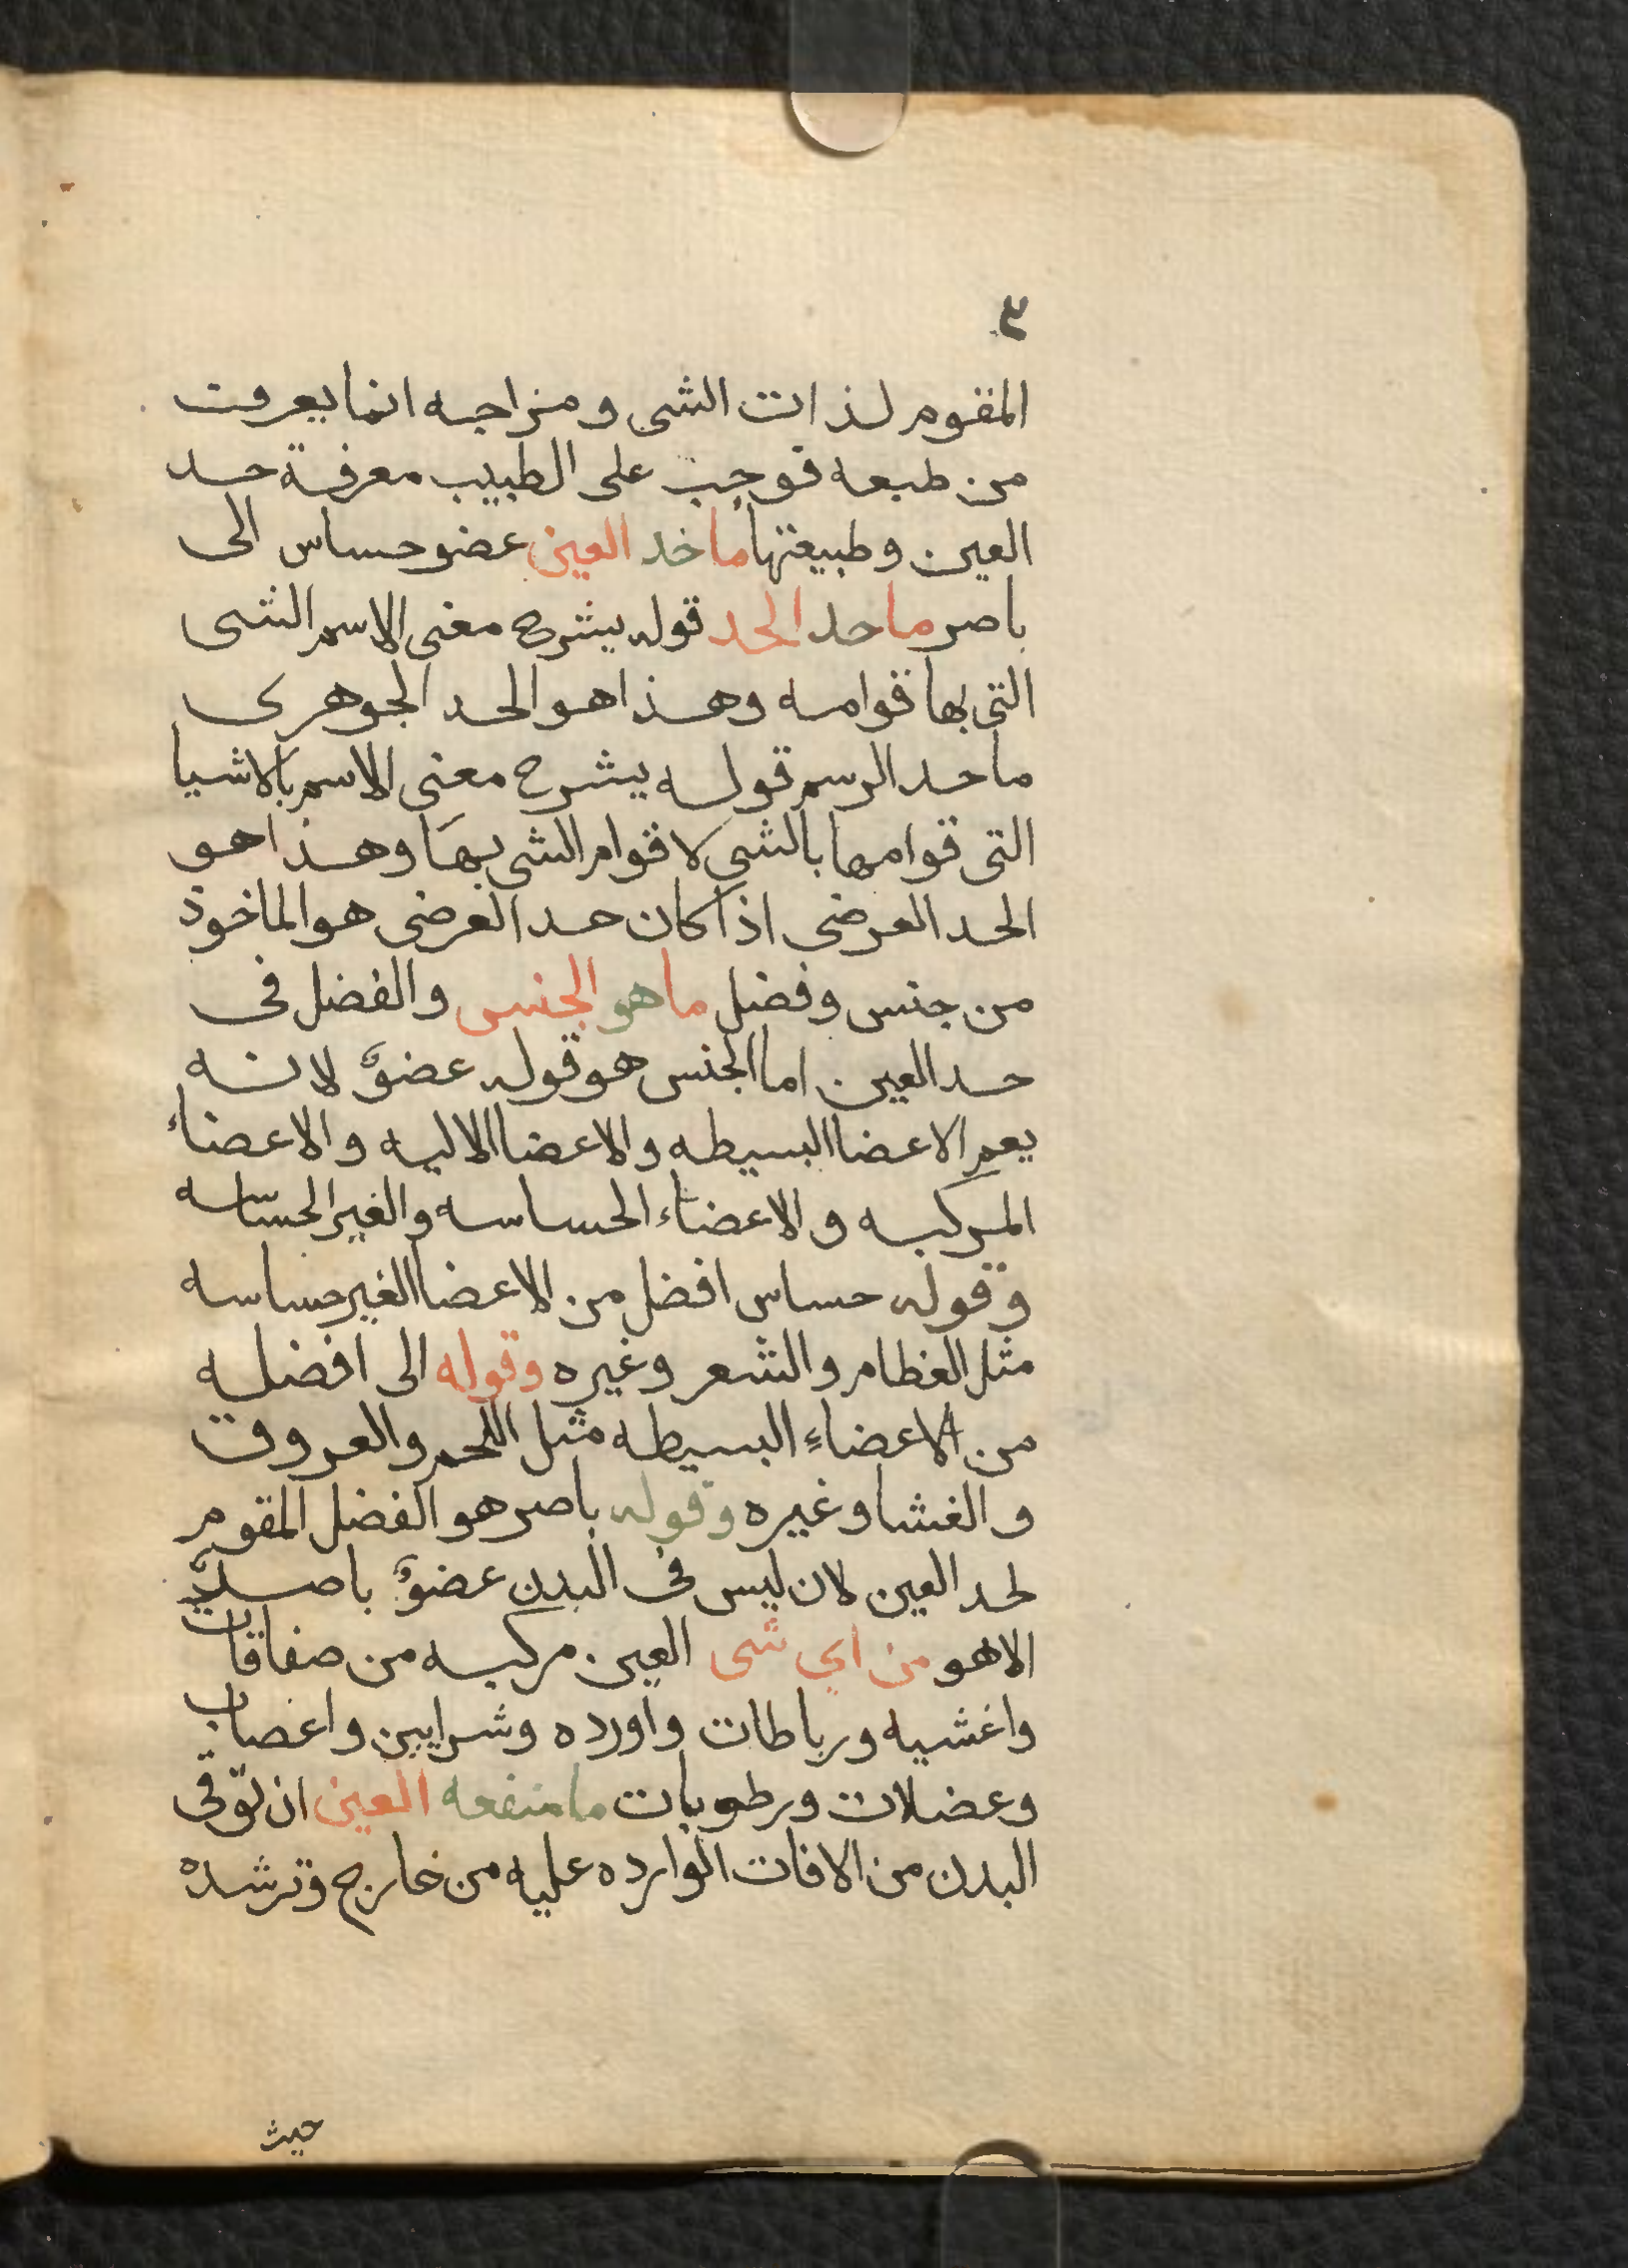 ٤
المقوم لذات الشى ومزاجه انما يعرف
من طبعه فوجب على الطبيب معرفة حد
العين وطبيعتها ما خد العين عضو حساس الى
باصر ما حد الحد قوله يشرح معنى الاسم الشى
التى بها قوامه وهذا هو الحد الجوهرى
ما حد الرسم قوله يشرح معنى الاسم بالاشيا
التى قوامها بالشى لا قوام الشى بها وهذا هو
الحد العرضى اذا كان حد العرضى هو الماخوذ
من جنس وفضل ما هو الجنس والفضل فى
حد العين اما الجنس هو قوله عضوٌ لانه
يعم الاعضا البسيطه والاعضا الاليه والاعضاء
المركبه والاعضاء الحساسه والغير الحساسه
وقوله حساس افضل من الاعضا الغير حساسه
مثل العظام والشعر وغيره وقوله الى افضله
من الاعضاء البسيطه مثل اللحم والعروق
والغشا وغيره وقوله باصر هو الفضل المقوم
لحد العين لان ليس فى البدن عضوٌ باصر
الا هو من اي شى العين مركبه من صفاقات
واغشيه ورباطات واورده وشرايين واعصاب
وعضلات ورطوبات ما منفعه العين ان توقى
البدن من الافات الوارده عليه من خارج وترشده
حيث